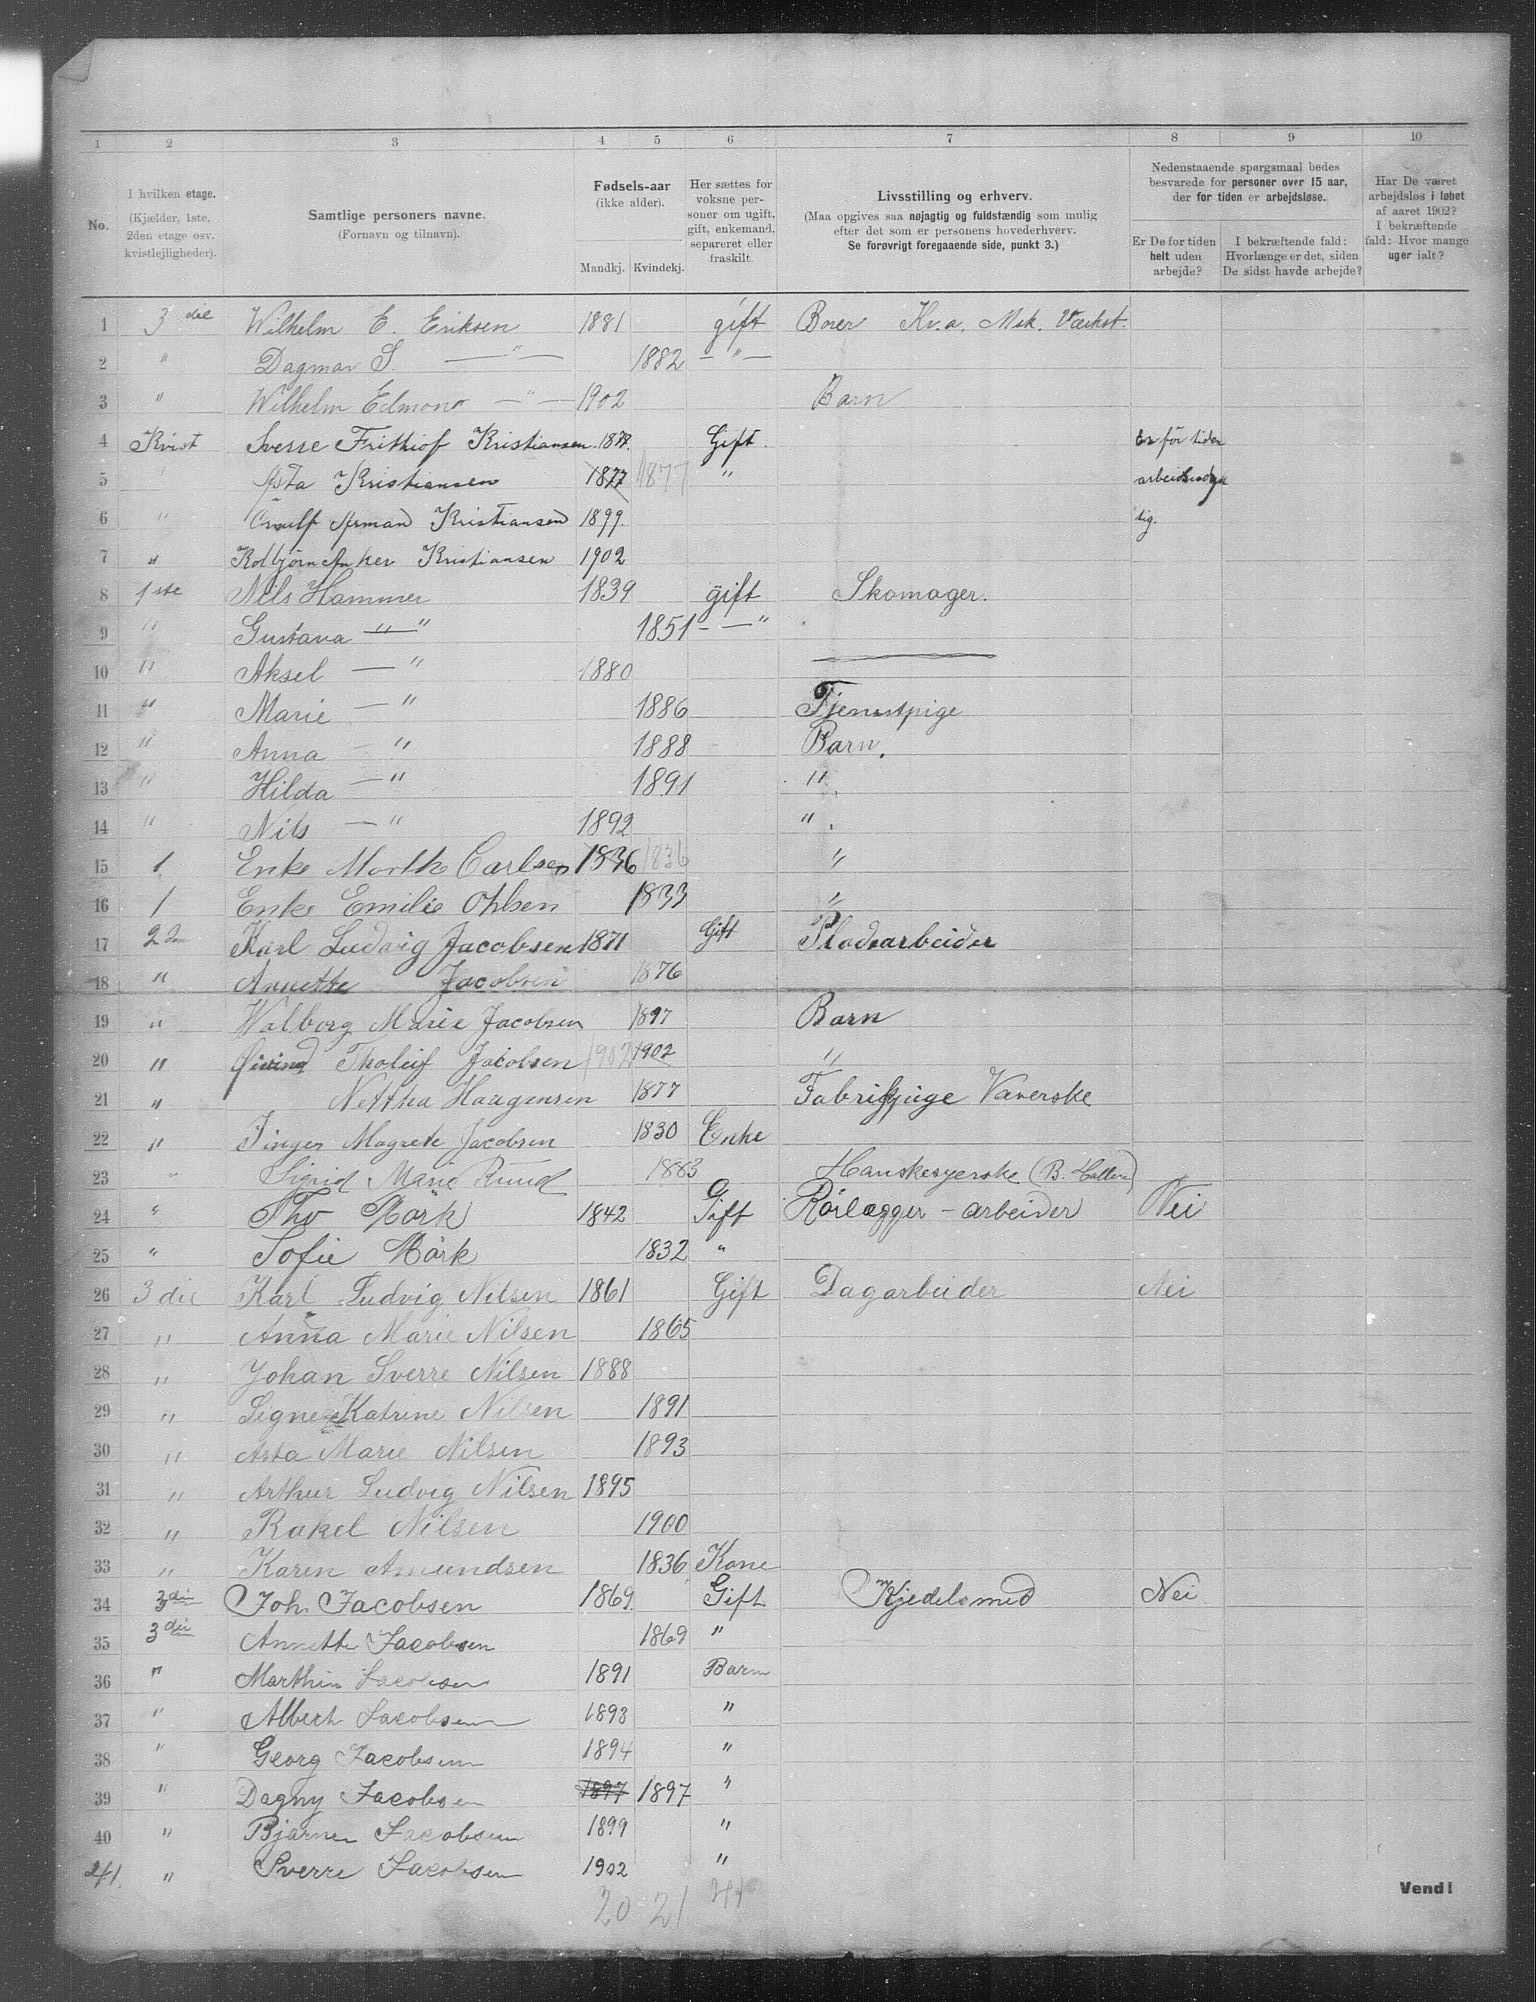 1 2 3 4 5 6 7 8 9 10
No.
I hvilken etage.
(Kjælder, 1ste,
2den etage osv.
kvistlejligheder).
Samtlige personers navne.
(Fornavn og tilnavn).
Fødsels-aar
(ikke alder).
Mandkj. Kvindekj.
Her sættes for
voksne per-
soner om ugift,
gift, enkemand,
separeret eller
fraskilt.
Livsstilling og erhverv.
(Maa opgives saa nøjagtig og fuldstændig som mulig
efter det som er personens hovederhverv.
Se forøvrigt foregaaende side, punkt 3.)
Nedenstaaende spørgsmaal bedes
besvarede for personer over 15 aar,
der for tiden er arbejdsløse.
Er De for tiden
helt uden
arbejde?
I bekræftende fald:
Hvorlænge er det, siden
De sidst havde arbejde?
Har De været
arbejdsløs i løbet
af aaret 1902?
I bekræftende
fald: Hvor mange
uger ialt?
1 3 die Wilhelm E. Eriksen 1881 gift Borer Kv.a. Mek. Værkst.
2 " Dagmar S. — " — 1882 — " —
3 " Wilhelm Edmond — " — 1902 Barn
4 Kvist Sverre Frithiof Kristiansen 1878. Gift. Er för tiden
5 " Asta Kristiansen 1877 1877 "
6 " Arman Kristiansen 1899. tig.
7 " Kolbjørn Anker Kristiansen 1902
8 1ste Nils Hammer 1839 gift Skomager.
9 " Gustava — " 1851 - — "
10 " Aksel — " 1880
11 " Marie — " 1886 Tjenestpige
12 " Anna — " 1888 Barn.
13 " Hilda — " 1891 "
14 " Nils — " 1892 " .
15 1 Enke Marthe Carlsen 1836 1836 "
16 1 Enke Emilie Ohlsen 1833 "
17 2den Karl Ludvig Jacobsen 1871 Gift Pladsarbeider
18 " Annette Jacobsen 1876
19 " Walborg Marie Jacobsen 1897 Barn
20 " Øivind Tholeif Jacobsen 1902 1902 "
21 " Nettha Haagensen 1877 Fabrikpige Væverske
22 " Inger Magrete Jacobsen 1830 Enke
23 " Sigrid Marie Ruud 1883 Hanskesyerske
24 " Tho Mörk 1842 Gift Rörlægger - arbeider Nei
25 " Sofie Mörk 1832 "
26 3 die Karl Ludvig Nilsen 1861 Gift Dagarbeider Nei
27 " Anna Marie Nilsen 1865
28 " Johan Sverre Nilsen 1888
29 " Signe Katrine Nilsen 1891
30 " Asta Marie Nilsen 1893
31 " Arthur Ludvig Nilsen 1895
32 " Rakel Nilsen 1900
33 " Karen Amundsen 1836 Kone
34 3die Joh. Jacobsen 1869. Gift Kjedelsmed Nei
35 3die Annette Jacobsen 1869 "
36 " Marthin Jacobsen 1891 Barn
37 " Albert Jacobsen 1893 "
38 " Georg Jacobsen 1894 "
39 " Dagny Jacobsen 1897 1897 "
40 " Bjarne Jacobsen 1899 "
41. " Sverre Jacobsen 1902 "
20 21 41
Vend!